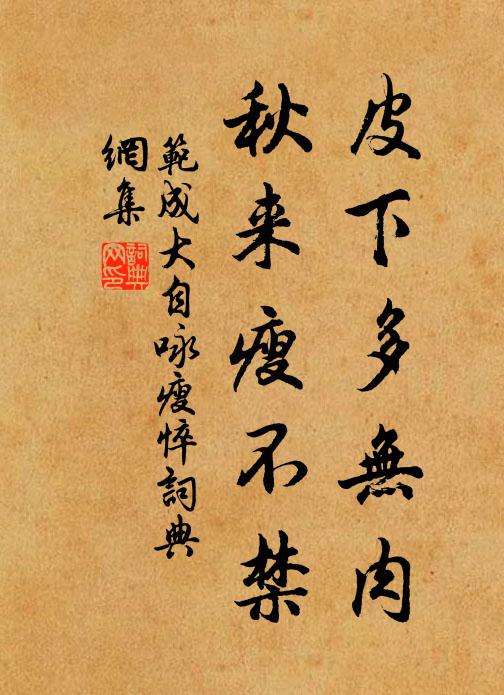 皮下多無肉
秋来瘦不禁
範成大自咏瘦悴詞典
網集
詞典
网印